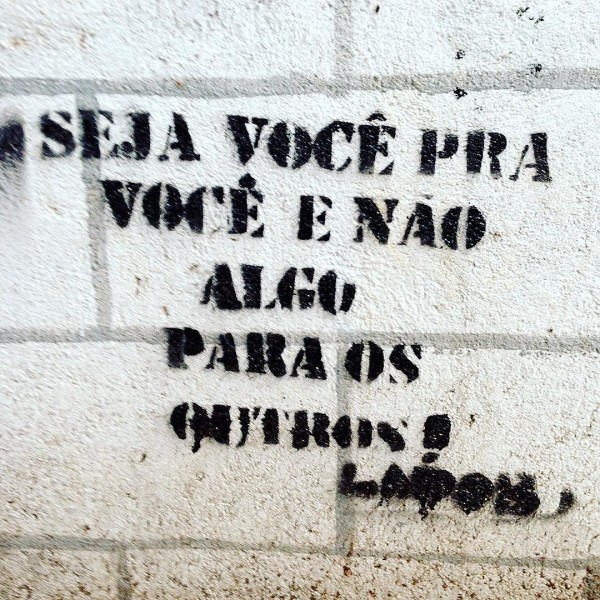 SEJA VOCÊ PRA
VOCÊ E NÃO
ALGO
PARA OS
OUTROS!